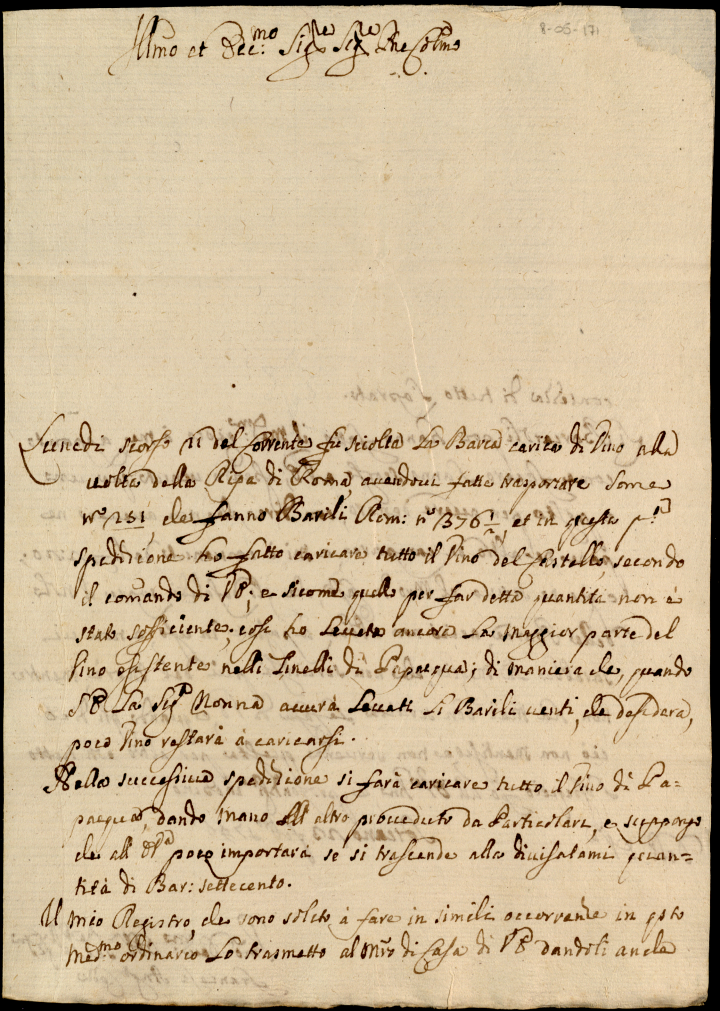 8-06-171
Illmo et Ecc:mo Sigre Sigre Pne Colmo
Lunedi scorso 11 del Corrente fù sciolta La Barca carica di Vino alla
uolta della Ripa di Roma, auendoui fatte trasportare Some
n° 251 che fanno Barili Rom: n° 376 1/2, et in questa p.a
spedizione ho fatto caricare tutto il Vino del Castello, secondo
il comando di VE; e sicome quello per far detta quantità non è
stato sofficiente, cosi ho Leuato ancora La maggior parte del
Vino esistente nelli Tinelli di Papacqua; di maniera che, quando
S.E. La Sigra Nonna auerà Leuati Li Barili uenti, che desidera,
poco Vino restarà à caricarsi.
Nella successiua spedizione si farà caricare tutto il Vino di Pa-
pacqua, dando mano all'altro proueduto da Particolari, e suppongo
che all' poco importarà se si trascende alla diuisatami quan-
tità di Bar: settecento.
Il mio Registro, che sono solito à fare in simili occorrenze in qsto
med:mo ordinario Lo trasmetto al Mro di Casa di VE dandoli anche